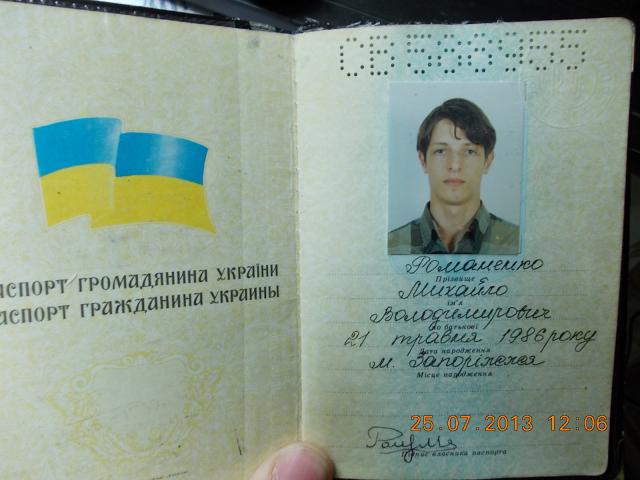 АСПОРТ ГРОМАДЯНИНА УКРАЇНИ
АСПОРТ ГРАЖДАНИНА УКРАИНЫ
СВ 586955
Романенко
Прізвище
Михайло
ім'я
Володимирович
по батькові
21 травня 1986 року
Дата народження
м. Запоріжжя
Місце народження
25.07.2013 12:06
підпис власника паспорта